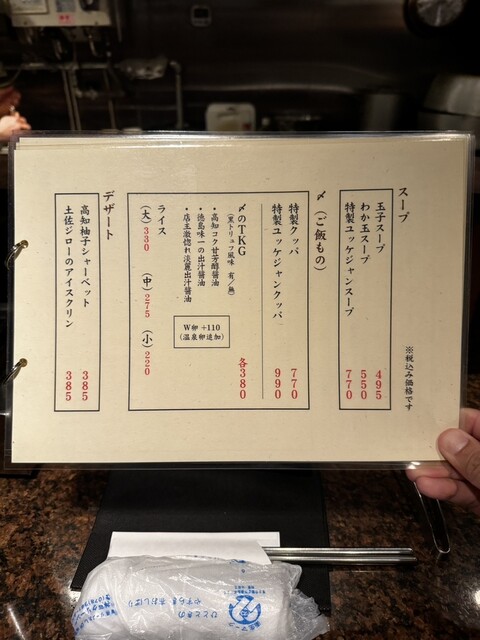 ※税込み価格です
スープ
玉子スープ 495
わか玉スープ 550
特製ユッケジャンスープ 770
〆（ご飯もの）
特製クッパ 770
特製ユッケジャンクッパ 990
〆のTKG 各380
（黒トリュフ風味 有／無）
・高知コク甘芳醇醤油
・徳島味一の出汁醤油
・店主激惚れ淡麗出汁醤油
W卵 +110
（温泉卵追加）
ライス
（大）330 （中）275 （小）220
デザート
高知柚子シャーベット 385
土佐ジローのアイスクリン 385
ひとときの
やすらぎ おしぼり